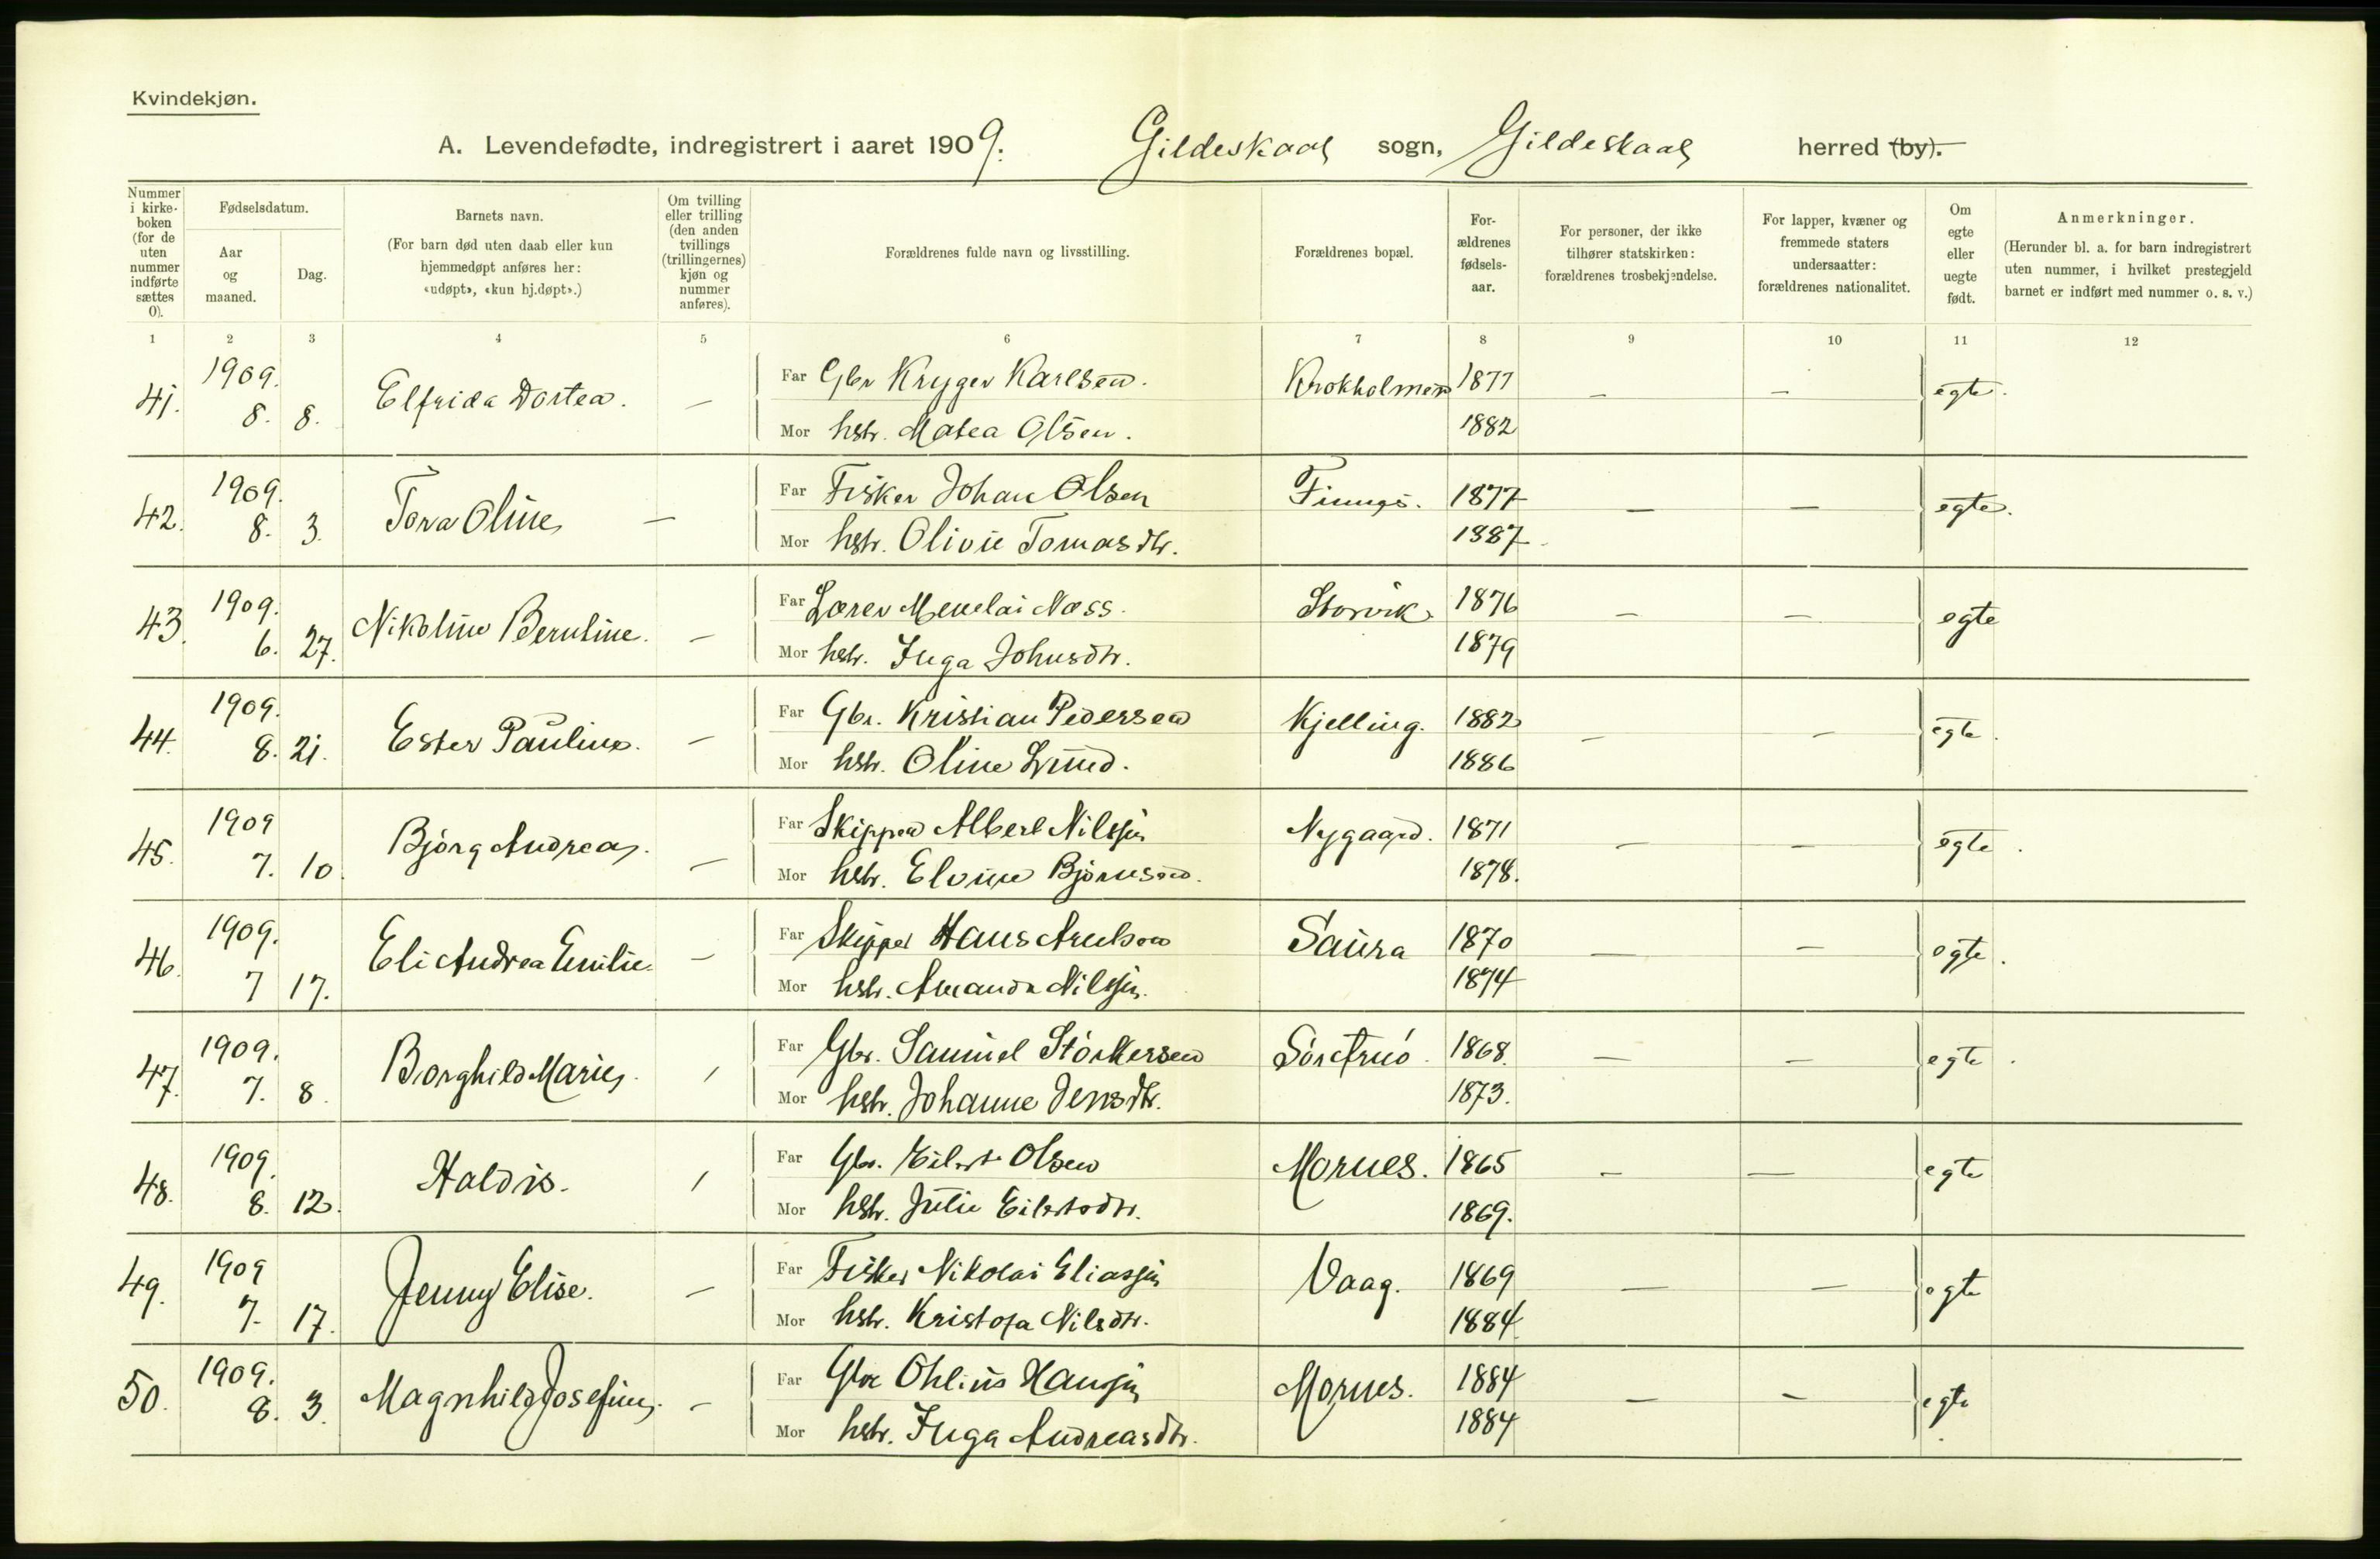 Kvindekjøn.
A. Levendefødte, indregistrert i aaret 1909. Gildeskaal sogn, Gildeskaal herred (by).
Nummer i kirke-boken (for de uten nummer indførte sættes 0).
Fødselsdatum.
Aar og maaned.
Dag.
Barnets navn.
(For barn død uten daab eller kun hjemmedøpt anføres her: «udøpt», «kun hj.døpt».)
Om tvilling eller trilling (den anden tvillings (trillingernes) kjøn og nummer anføres).
Forældrenes fulde navn og livsstilling.
Forældrenes bopæl.
For-ældrenes fødsels-aar.
For personer, der ikke tilhører statskirken: forældrenes trosbekjendelse.
For lapper, kvæner og fremmede staters undersaatter: forældrenes nationalitet.
Om egte eller uegte født.
Anmerkninger.
(Herunder bl. a. for barn indregistrert uten nummer, i hvilket prestegjeld barnet er indført med nummer o. s. v.)
1 2 3 4 5 6 7 8 9 10 11 12
41. 1909. 8. 8. Elfrida Dortea. — Far Gbr Kryger Karlsen. Krokholmen 1877 — — egte.
Mor hstr. Matea Olsen. 1882
42. 1909. 8. 3. Tora Oline — Far Fisker Johan Olsen 1877 — — egte.
Mor hstr. Olivie Tomasdtr. 1887
43. 1909. 6. 27. Nikoline Bernline. — Far Lærer Menelai Næss. Storvik 1876 — — egte
Mor hstr. Inga Johnsdtr. 1879
44. 1909. 8. 21. Ester Pauline. — Far Gbr. Kristian Pedersen Kjelling. 1882 — — egte.
Mor hstr. Oline Lund. 1886
45. 1909 7. 10. Bjørg Andrea. — Far Skipper Albert Nilssen Nygaard. 1871 — — egte.
Mor hstr. Elvine Bjørnsen. 1878.
46. 1909. 7 17. Eli Andrea Emilie. — Far Skipper Hans Arntsen Saura 1870 — — egte.
Mor hstr. Amanda Nilssen. 1874
47. 1909. 7. 8. Borghild Marie. / Far Gbr. Samuel Størkersen Sørarnø. 1868. — — egte.
Mor hstr. Johanne Jensdtr. 1873.
48. 1909. 8. 12. Haldis. / Far Gbr. Eilert Olsen Mornes. 1865 — — egte
Mor hstr. Julie Eilertsdtr. 1869.
49. 1909 7. 17. Jenny Elise. — Far Fisker Nikolai Eliassen Vaag. 1869 — — egte
Mor hstr. Kristofa Nilsdtr. 1884.
50. 1909. 8. 3. Magnhild Josefine. — Far Gbr Ohlius Hanssen Mornes. 1884 — — egte
Mor hstr. Inga Andreasdtr. 1884